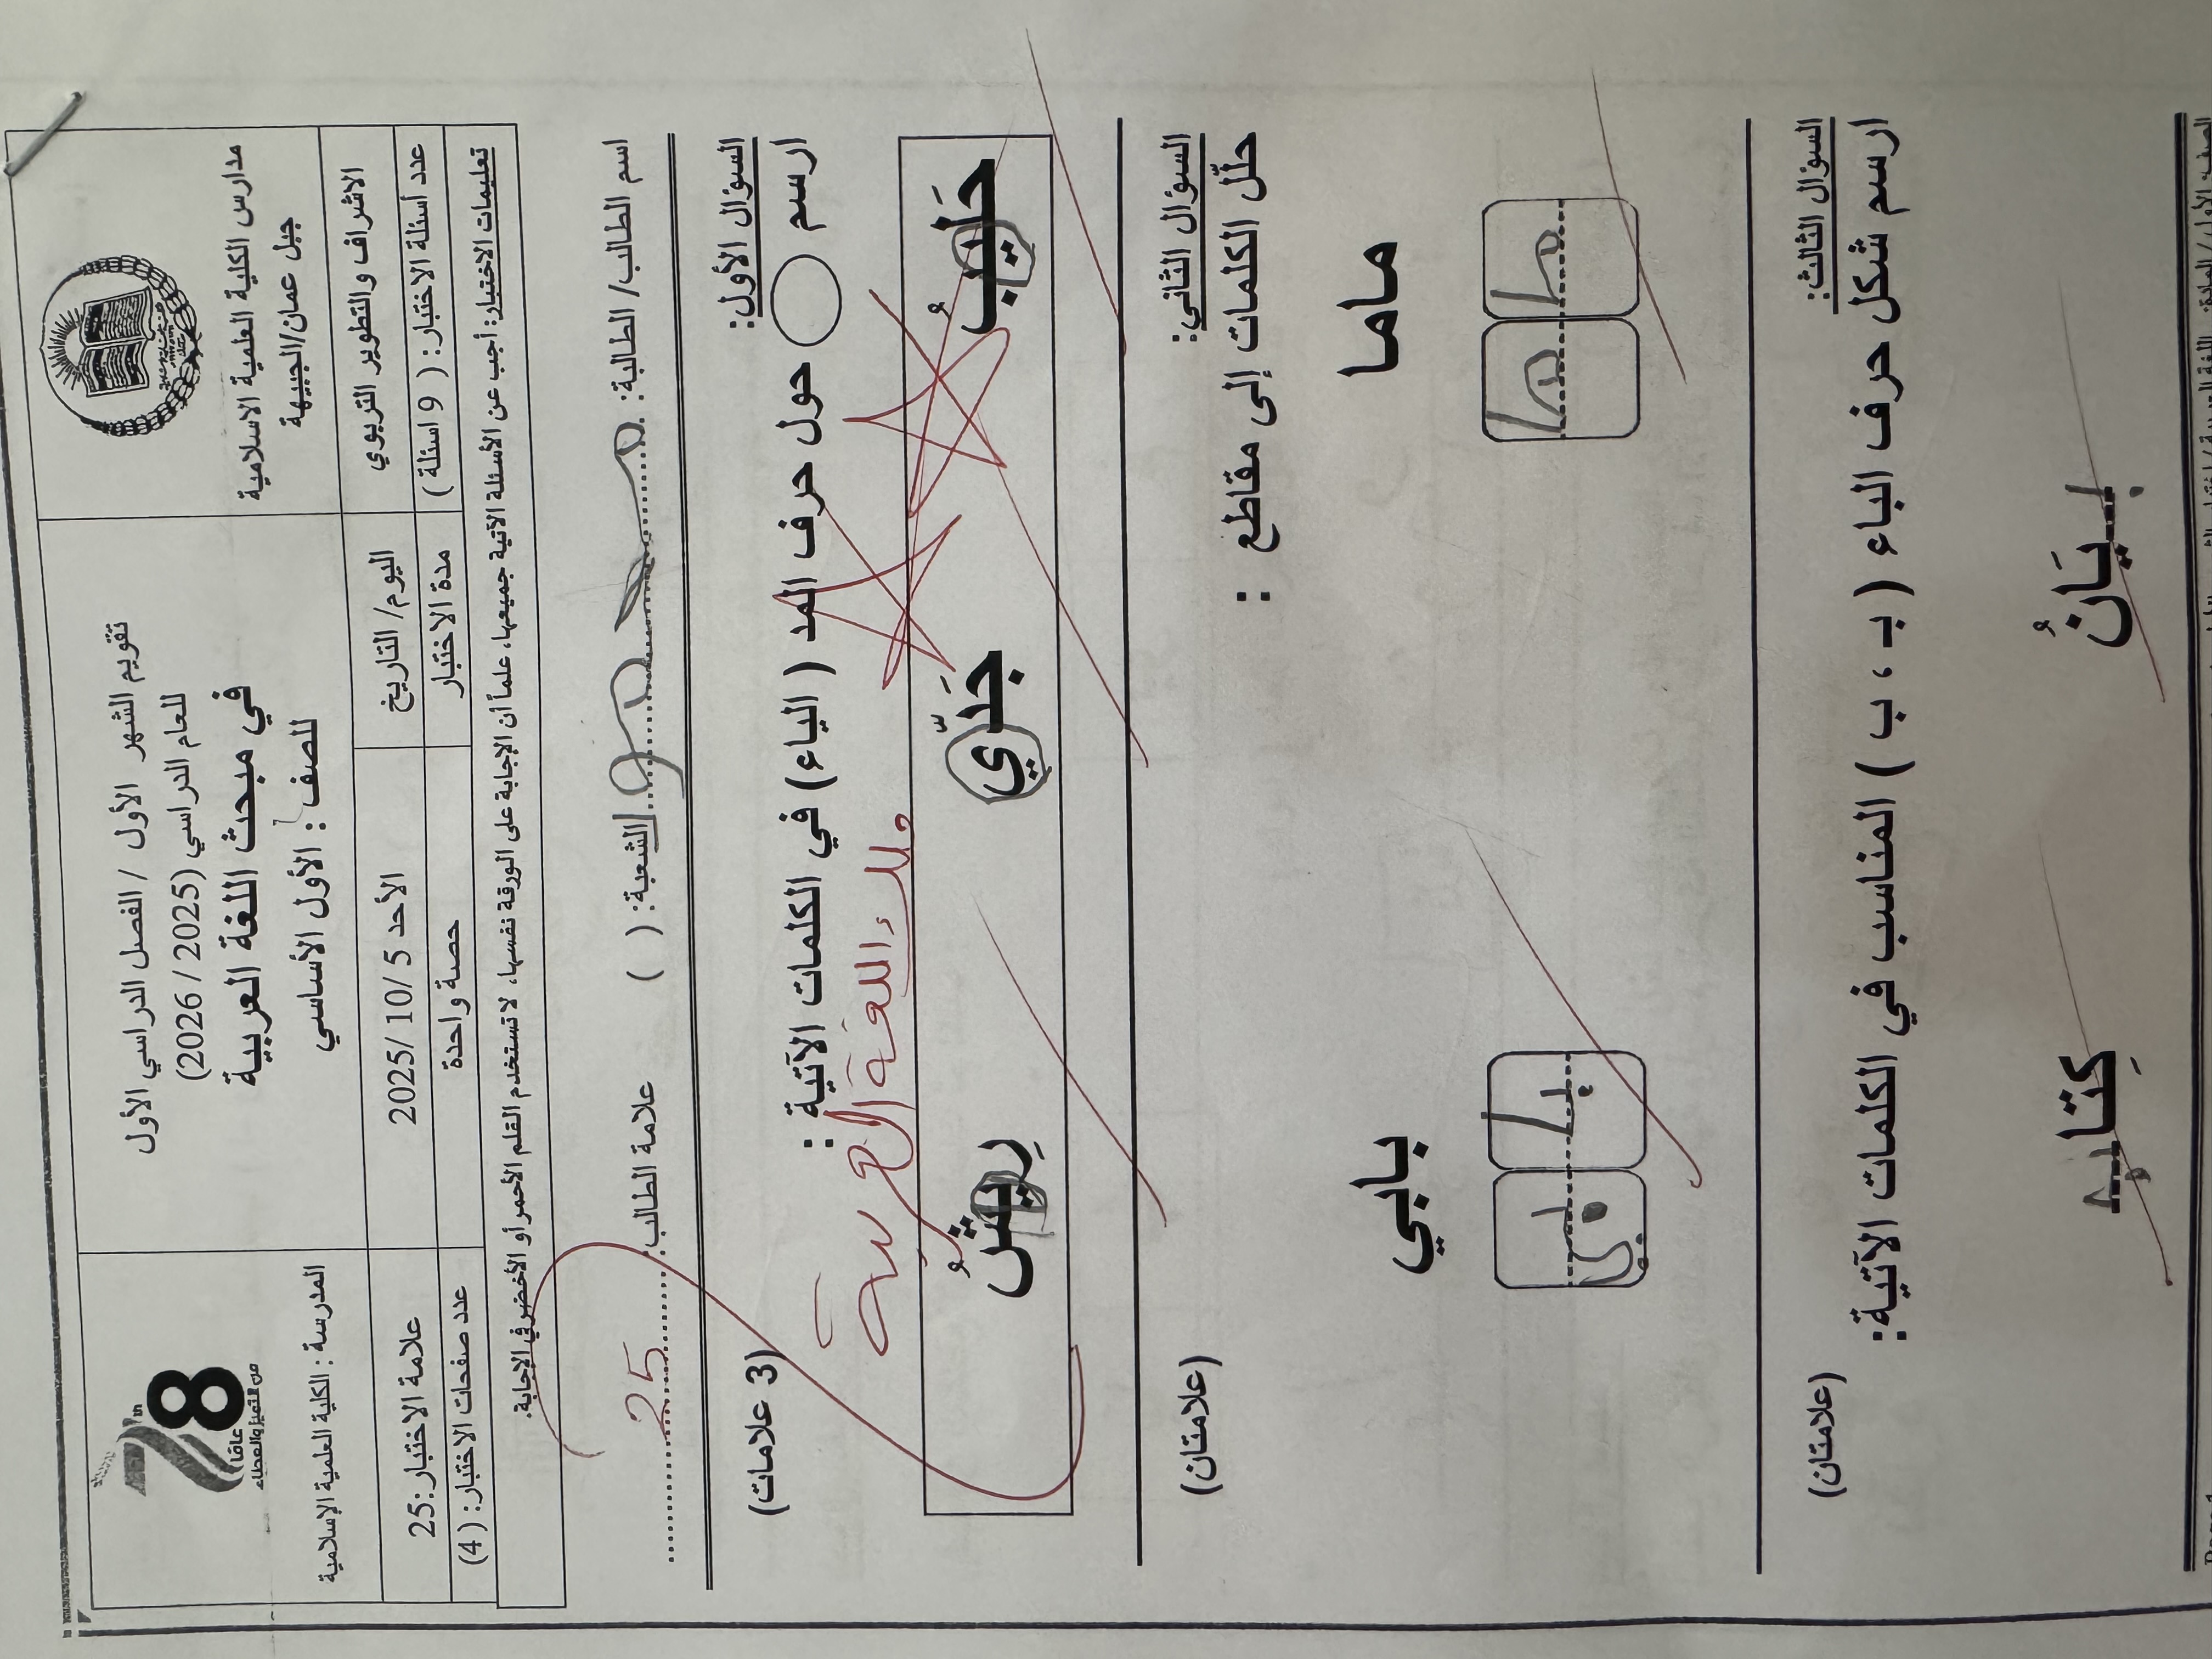 مدارس الكلية العلمية الاسلامية
جبل عمان/الجبيهة
تقويم الشهر الأول / الفصل الدراسي الأول
للعام الدراسي (2025 / 2026)
في مبحث اللغة العربية
للصف : الأول الأساسي
78
th
عامًا
من التميز والعطاء
المدرسة : الكلية العلمية الإسلامية
الاشراف والتطوير التربوي
اليوم/ التاريخ
الأحد 5 /10 /2025
علامة الاختبار :25
عدد أسئلة الاختبار : ( 9 اسئلة )
مدة الاختبار
حصة واحدة
عدد صفحات الاختبار : (4)
تعليمات الاختبار: أجب عن الأسئلة الآتية جميعها، علماً أن الإجابة على الورقة نفسها، لا تستخدم القلم الأحمر أو الأخضر في الإجابة.
اسم الطالب/ الطالبة:
الشعبة: ( )
علامة الطالب: 25
السؤال الأول:
(3 علامات)
ارسم حول حرف المد ( الياء) في الكلمات الآتية :
اللغة العربية
حَليبٌ جَدّي ريشٌ
السؤال الثاني:
(علامتان)
حلّل الكلمات إلى مقاطع :
ماما بابي
ما ما با بي
السؤال الثالث:
(علامتان)
ارسم شكل حرف الباء ( بـ ، ب ) المناسب في الكلمات الآتية:
بيَانٌ كِتاب